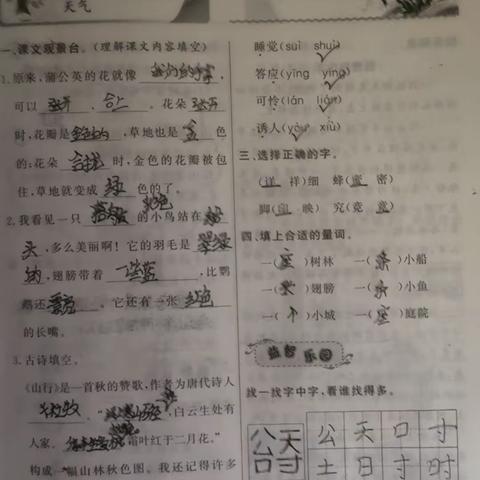 天气
一、课文观景台。(理解课文内容填空)
1.原来,蒲公英的花就像 我们的手掌,
可以 张开 、 合上 。花朵 张开
时,花瓣是 金色的 ,草地也是 金 色
的;花朵 合拢 时,金色的花瓣被包
住,草地就变成 绿 色的了。
2.我看见一只 的小鸟站在
头,多么美丽啊!它的羽毛是 翠绿
的,翅膀带着 ,比鹦
鹉还 。它还有一张 红色
的长嘴。
3.古诗填空。
《山行》是一首秋的赞歌,作者为唐代诗人
杜牧。“ ,白云生处有
人家。 ,霜叶红于二月花。”
构成一幅山林秋色图。我还记得许多
睡觉(suì shuì)
答应(yīng yìng)
可怜(lán lián)
诱人(yòu xiù)
三、选择正确的字。
(详 祥)细 蜂(蜜 密)
脚(印 映) 究(竞 竟)
四、填上合适的量词。
一(座)树林 一(条)小船
一( )翅膀 一( )小鱼
一(个)小城 一(座)庭院
益智乐园
找一找字中字,看谁找得多。
公 天 口 寸
土 日 寸 时